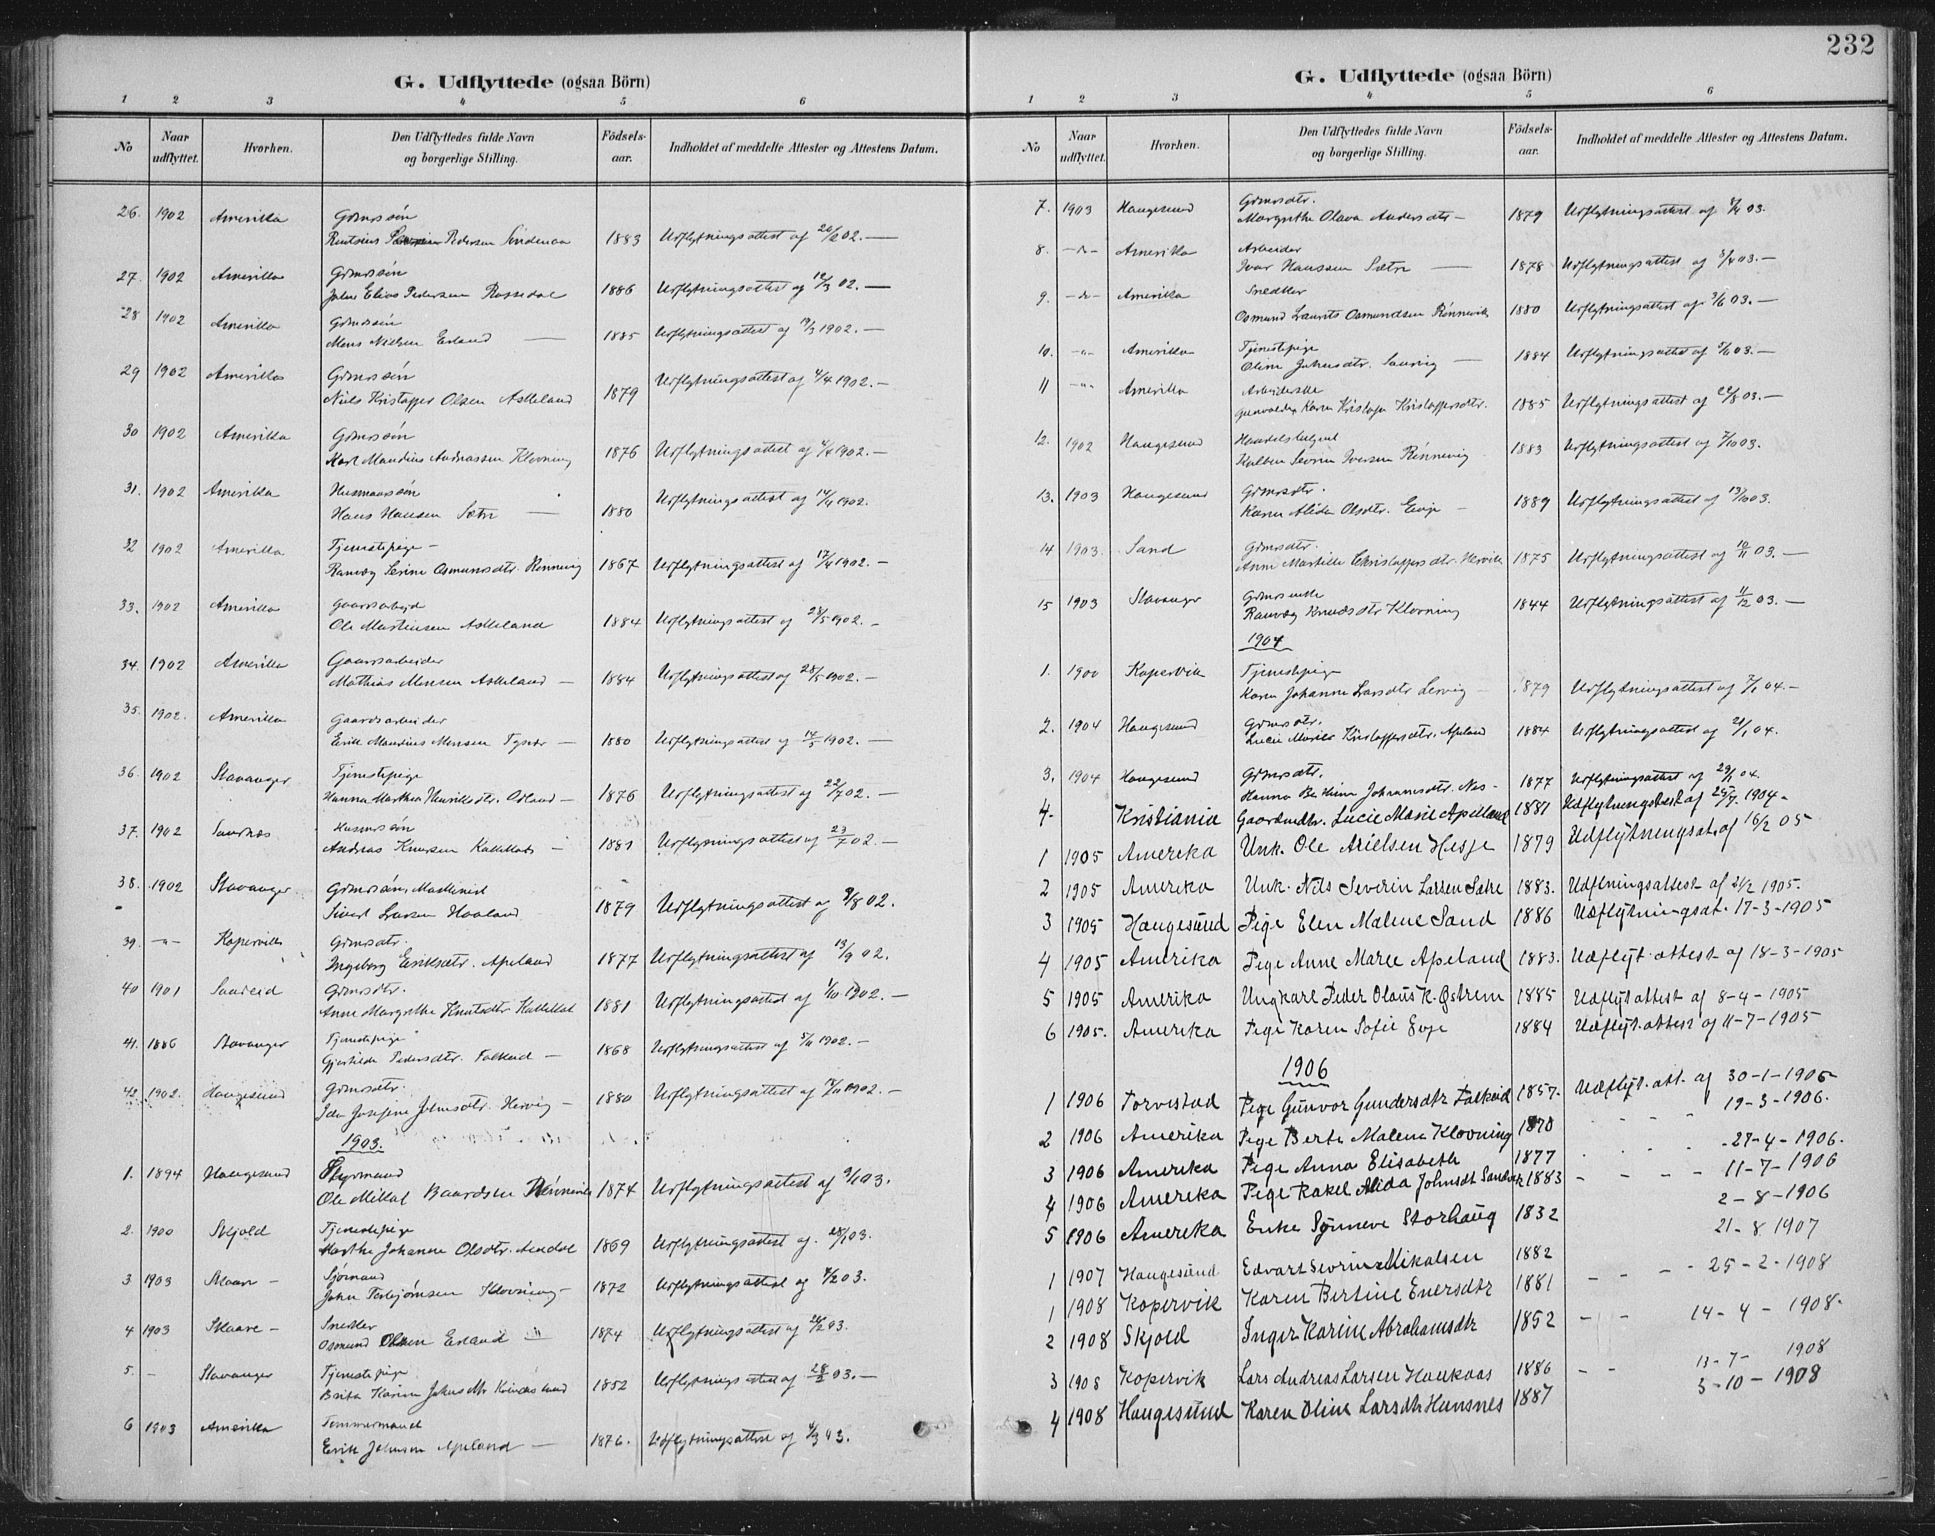 G. Udflyttede (ogsaa Börn)
1 2 3 4 5 6
No Naar udflyttet. Hvorhen. Den Udflyttedes fulde Navn og borgerlige Stilling. Födsels-aar. Indholdet af meddelte Attester og Attestens Datum.
26. 1902 Amerika Grmdssøn
Pedersen 1883 Udflytningsattest af 20/2 02. —
27. 1902 Amerika Grmdssøn
Elias Pedersen Rossedal 1886 Udflytningsattest af 12/3 02. —
28 1902 Amerika Grmdssøn
Mons Nielsen Erland — 1885 Udflytningsattest af 17/3 1902. —
29 1902 Amerika Grmdssøn
Niels Kristoffer Olsen Askeland 1879 Udflytningsattest af 4/4 1902. —
30 1902 Amerika Grmdssøn
Karl Maudius Andreassen Klovning 1876 Udflytningsattest af 4/4 1902. —
31. 1902 Amerika Husmandssøn
Hans Hansen Sætre — 1880 Udflytningsattest af 14/4 1902.
32 1902 Amerika Tjenestepige —
Ranveg Serine Osmundsdtr. Rønnevig 1867 Udflytningsattest af 17/4 1902. —
33. 1902 Amerika Gaardsarbeid
Ole Martinsen Askeland 1884 Udflytningsattest af 28/5 1902. —
34. 1902 Amerika Gaardsarbeider
Mathias Monsen Askeland — 1884 Udflytningsattest af 28/5 1902. —
35. 1902. Amerika Gaardsarbeider
Erik Maudius Monsen Tysvær — 1880 Udflytningsattest af 14/5 1902. —
36. 1902 Stavanger Tjenestepige
Hanna Marthea Henriksdtr. Erland — 1876 Udflytningsattest af 22/7 02. —
37. 1902 Sandnes Husmdssøn
Andreas Knutsen Kallekot — 1881 Udflytningsattest af 23/7 02. —
38. 1902 Stavanger Grmdssøn, Maskinist
Sivert Larsen Haaland 1879 Udflytningsattest af 9/8 02.
39. —"— Kopervik Grmdsdtr.
Ingeborg Eriksdtr. Apeland 1877 Udflytningsattest af 13/9 02.
40 1901 Sandeid Grmdsdtr.
Anne Margrethe Knutsdtr Kallekot 1881 Udflytningsattest af 1/10 1902. —
41. 1886 Stavanger Tjenestepige
Pedersdtr. Falkeid — 1868 Udflytningsattest af 5/11 1902. —
42 1902. Haugesund Grmdsdtr.
Ida Josefine Johnsdtr. Hervig — 1880 Udflytningsattest af 1902. —
1903.
1. 1894 Haugesund Styrmand
Ole Mikal Baardsen Rønnevik 1874 Udflytningsattest af 9/1 03.
2. 1900 Skjold Tjenestepige
Marthe Johanne Olsdtr. 1869 Udflytningsattest af. 28/1 03.
3 1903 Skaare — Sjømand
John Torbjørnsen Klovning — 1872 Udflytningsattest af 4/2 03.
4 1903 Skaare — Snedker
Osmund Olsen Erland —"— 1874 Udflytningsattest af 26/2 03.
5. — Stavanger Tjenestepige
Brita Karine Johnsdtr 1852 Udflytningsattest af 28/2 03. —
6 1903 Amerika Tømmermand
Erik Johnsen Apeland — 1876. Udflytningsattest af 4/3 03.
232
G. Udflyttede (ogsaa Börn)
1 2 3 4 5 6
No Naar udflyttet. Hvorhen. Den Udflyttedes fulde Navn og borgerlige Stilling. Födsels-aar. Indholdet af meddelte Attester og Attestens Datum.
7. 1903 Haugesund Grmdsdtr.
Margrethe Olava Andersdtr — 1879 Udflytningsattest af 03.
8. —"— Amerika Arbeider
Ivar Hanssen Sætre — 1878 Udflytningsattest af 3/4 03. —
9. —"— Amerika Snedker
Osmund Laurits Osmundsen Rønnevik 1880 Udflytningsattest af 3/6 03. —
10. —"— Amerika Tjenestepige
Oline Johnsdtr. — 1884 Udflytningsattest af 03. —
11 —"— Amerika Arbeiderske
Karen Kristofa Kristoffersdtr. 1885 Udflytningsattest af 22/8 03. —
12. 1902 Haugesund Handelsbetjent
Kolben Severin Iversen Rønnevig 1883 Udflytningsattest af 7/10 03.
13. 1903 Haugesund Grmdsdtr.
Karen Alida Olsdtr. Evje — 1889 Udflytningsattest af 13/10 03.
14 1903. Sand Grmdsdtr.
Anne Martille Christoffersdtr. Hervik 1875 Udflytningsattest af 10/11 03. —
15 1903 Stavanger Grmdsenke
Ranveg Knudsdtr Klovning 1844 Udflytningsattest af 11/12 03. —
1904
1. 1900 Kopervik Tjenestepige
Karen Johanne Larsdtr Lervig — 1879 Udflytningsattest af 7/1 04. —
2. 1904 Haugesund Grmdsdtr.
Lucie Marie Kristoffersdtr. Apeland 1884 Udflytningsattest af 21/1 04.
3. 1904 Haugesund Grmdsdtr.
Hanna Johannesdtr. Nes — 1877 Udflytningsattest af 29/1 04.
4- Kristiania Gaardmdtr. Lucie Marie Apeland 1881 Udflytningstest af 25/7. 1904-
1 1905 Amerika Unk. Ole Arielsen Hesje 1879 Udflytningsat. af 16/2 05
2 1905 Amerika Unk. Nils Severin Larsen Sætre 1883. Udfltningsattest af 21/2 1905.
3 1905 Haugesund Pige Elen Malene Sand 1886 Udflytningsat. 17-3-1905
4 1905 Amerika Pige Anne Marie Apeland 1883. Udflyt. attest af 18-3-1905
5 1905 Amerika Ungkarl Peder Olaus K. Østrem 1885 Udflyt attest af 8-4-1905
6 1905. Amerika Pige Karen Sofie Evje 1884 Udflyt. attest af 11-7-1905
1906
1 1906 Torvestad Pige Gunvor Gundersdtr Falkeid 1857- Udflyt. att. af 30-1-1906-
2 1906 Amerika Pige Berte Malena Klovning 1870 19-3-1906.
3 1906 Amerika Pige Anna Elisabeth 1877 27-4-1906.
4 1906 Amerika Pige Rakel Alida Johnsdt 1883 11-7-1906
5 1906 Amerika Enke Synneve Storhaug 1832 2-8-1906
1 1907 Haugesund Edvart Severin Mikalsen 1882 21-8 1907
1 1908 Kopervik Karen Bertine Enersdtr 1881 25-2-1908
2 1908 Skjold Inger Karine Abrahamsdtr 1852 14-4-1908-
3 1908 Kopervik Lars Andreas Larsen Haukaas 1886 13-7- 1908
4 1908 Haugesund Karen Oline Larsdtr Hunsnes 1887 3-10-1908